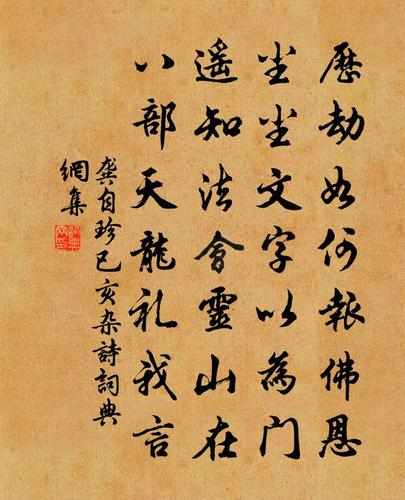 歷劫如何報佛恩
尘尘文字以為門
遙知法會靈山在
八部天龍礼我言
龔自珍己亥杂詩詞典
網集